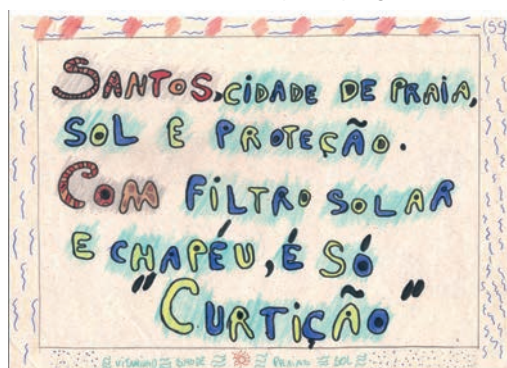 SANTOS, CIDADE DE PRAIA,
SOL E PROTEÇÃO.
COM FILTRO SOLAR
E CHAPÉU, É SÓ
"CURTIÇÃO"
PRAIA SOL